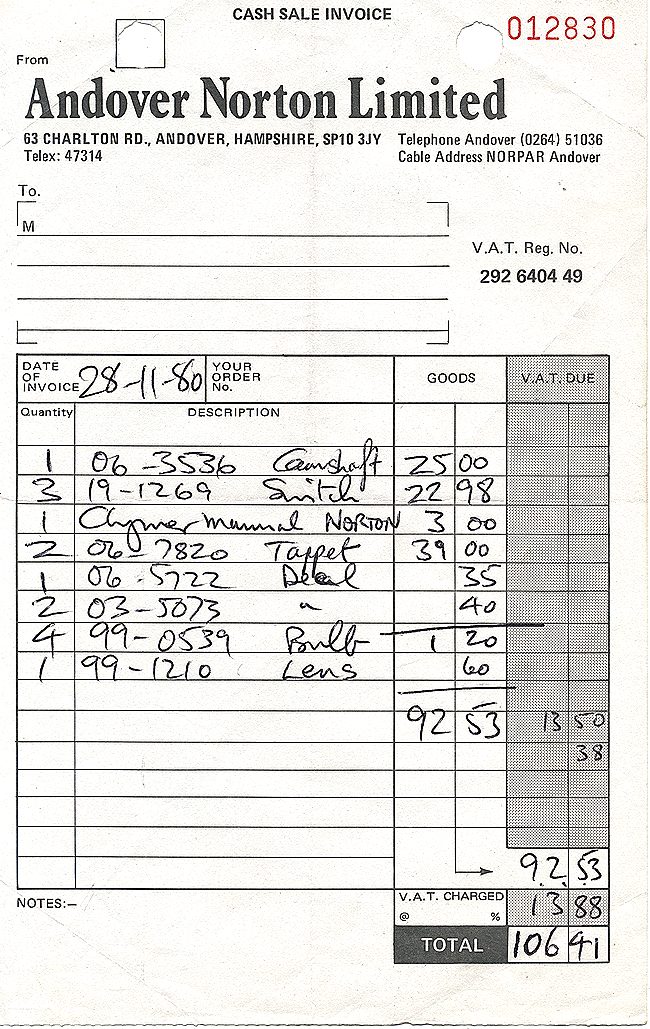 CASH SALE INVOICE
012830
From
Andover Norton Limited
63 CHARLTON RD., ANDOVER, HAMPSHIRE, SP10 3JY Telephone Andover (0264) 51036
Telex: 47314 Cable Address NORPAR Andover
To.
M
V.A.T. Reg. No.
292 6404 49
DATE OF INVOICE 28-11-80 YOUR ORDER No. GOODS V.A.T. DUE
Quantity DESCRIPTION
1 06-3536 Camshaft 25 00
3 19-1269 Switch 22 98
1 Clymer manual NORTON 3 00
2 06-7820 Tappet 39 00
1 06-5722 Decal 35
2 03-5073 " 40
4 99-0539 Bulb 1 20
1 99-1210 Lens 60
92 53 13 50
38
92 53
NOTES:— V.A.T. CHARGED @ % 13 88
TOTAL 106 41